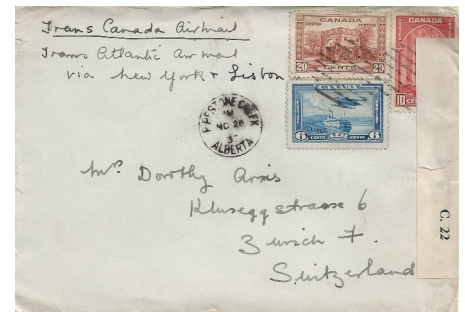 Trans Canada Airmail
Trans Atlantic Air mail
via New York & Lisbon
CANADA
POSTES POSTAGE
20 20
CENTS
CANADA
10
CANADA
6 6
CENTS AIR CENTS
CREEK
AM
NO 26
ALBERTA
Mrs Dorothy
Klusegg strasse 6
Zurich 7.
Switzerland
C. 22